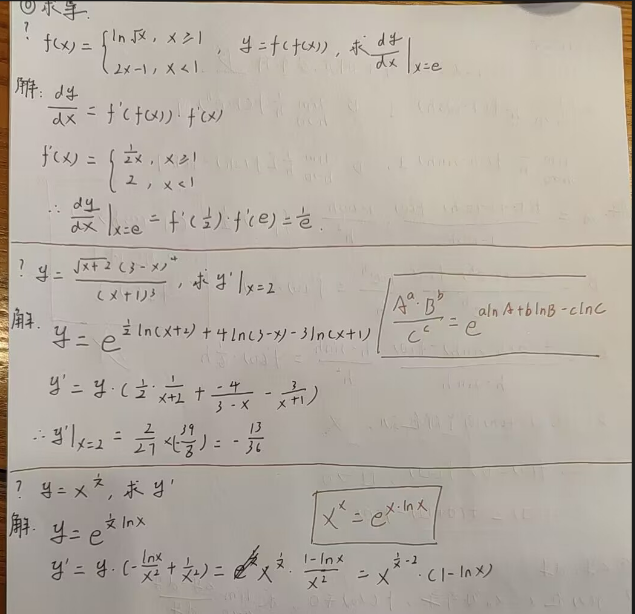 ① 求导.
? f(x) = { ln√x, x≥1 ; 2x-1, x<1 , y=f(f(x)), 求 dy/dx |x=e
解: dy/dx = f'(f(x))·f'(x)
f'(x) = { 1/2x, x≥1 ; 2, x<1
∴ dy/dx |x=e = f'(1/2)·f'(e) = 1/e.
? y = √x+2 (3-x)⁴ / (x+1)³ , 求 y'|x=2
解. y = e^(1/2 ln(x+2) + 4ln(3-x) - 3ln(x+1))
A^a·B^b / C^c = e^(alnA+blnB-clnC)
y' = y·(1/2·1/x+2 + -4/3-x - 3/x+1)
∴ y'|x=2 = 2/27 ×(-39/8) = -13/36
? y = x^(1/x), 求 y'
解. y = e^(1/x lnx)
x^x = e^(x·lnx)
y' = y·(-lnx/x² + 1/x²) = x^(1/x)·1-lnx/x² = x^(1/x-2)·(1-lnx)